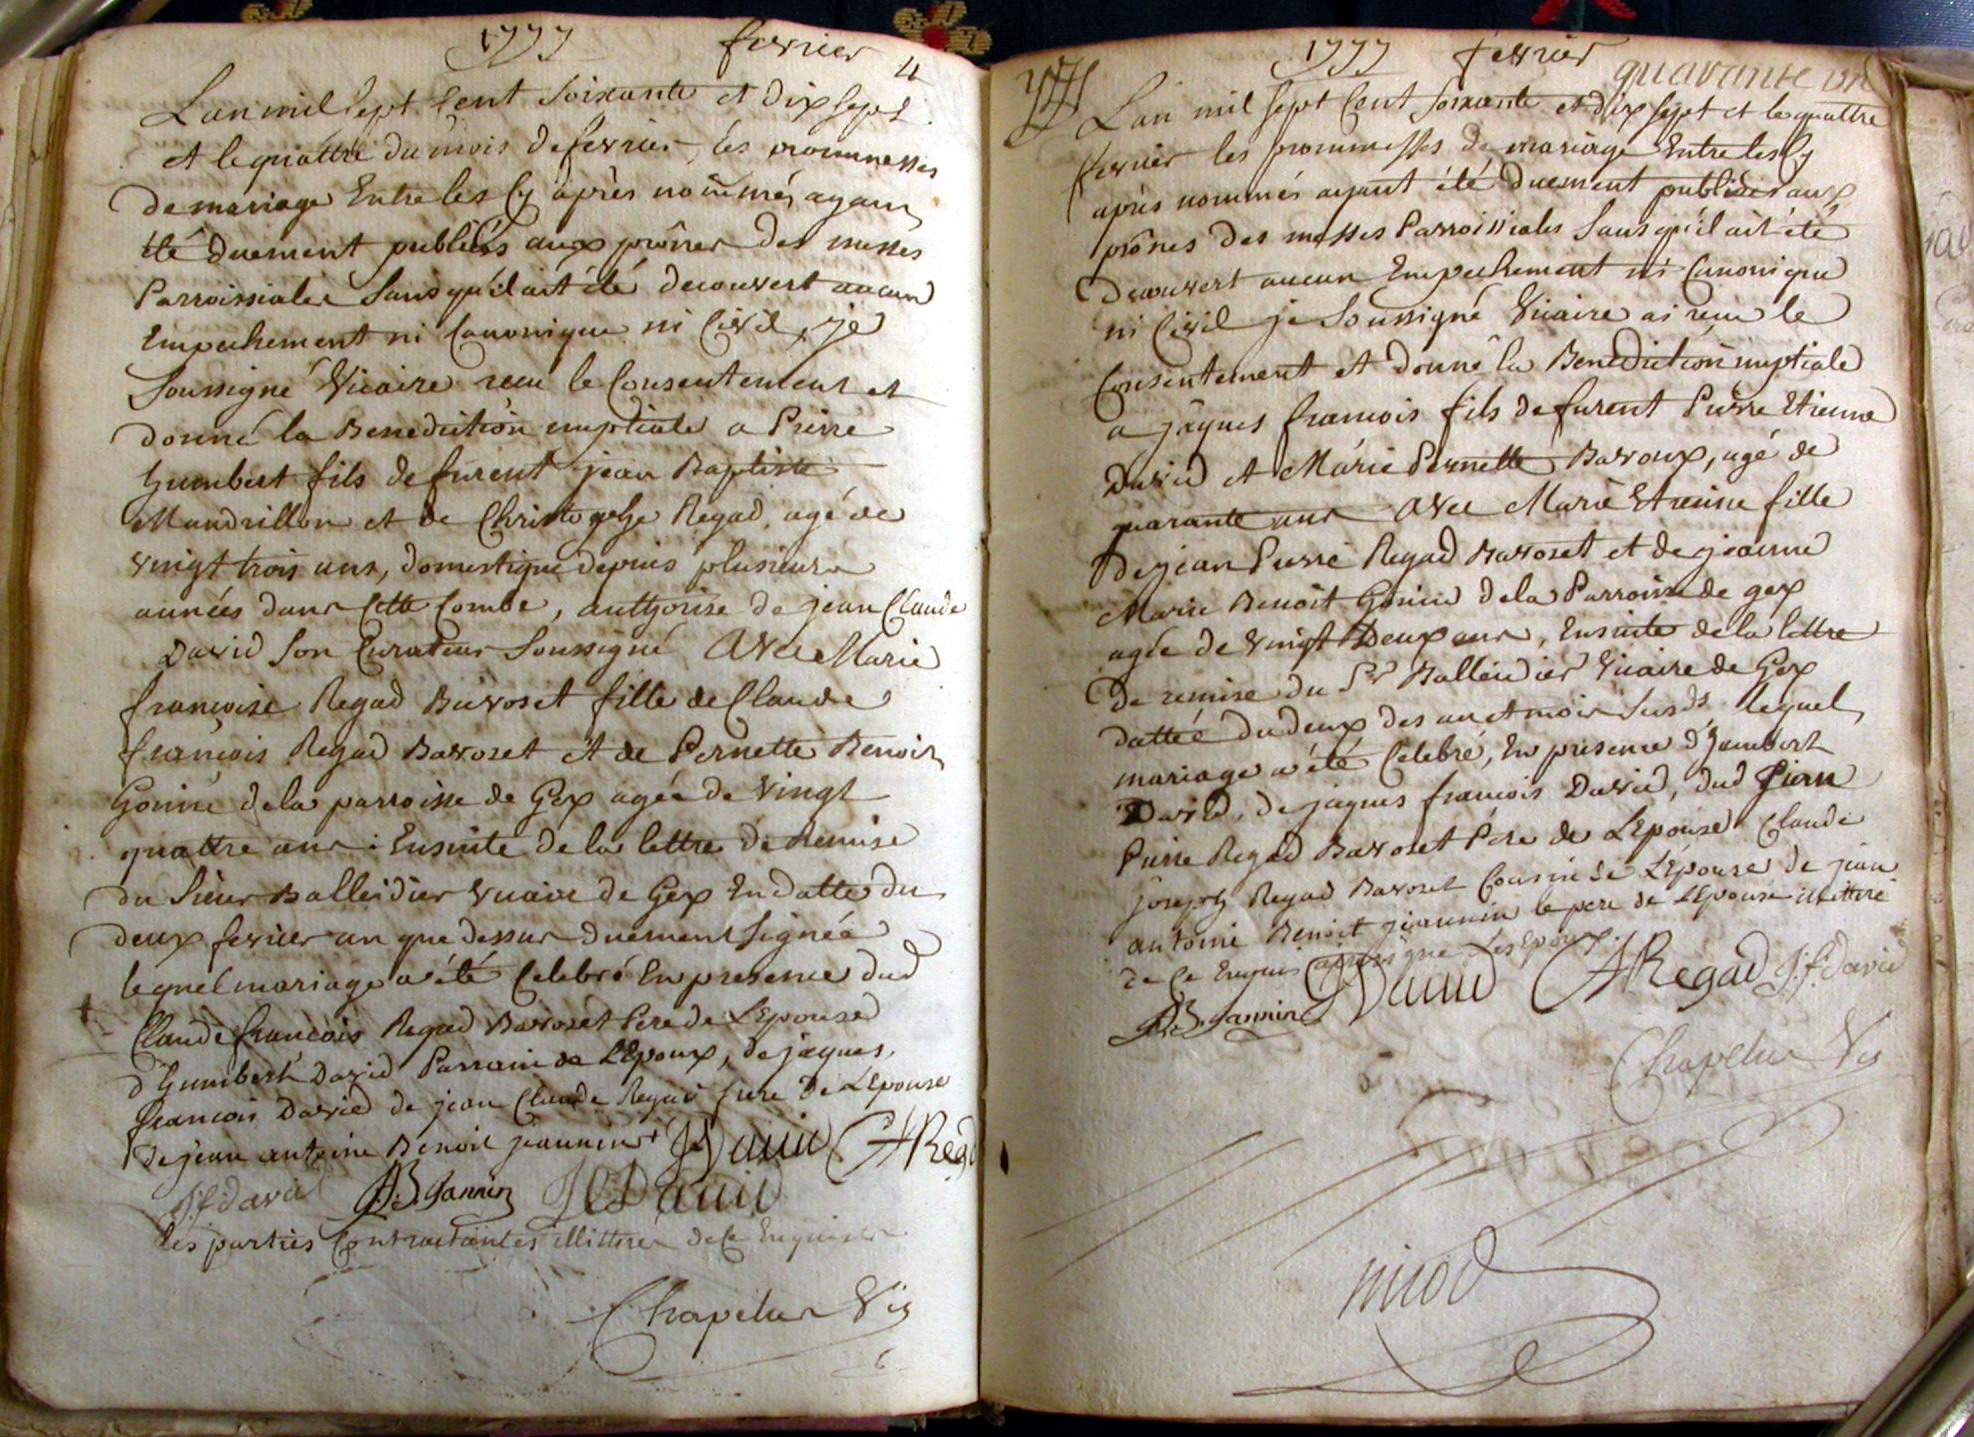 1777 fevrier
4
L'an mil sept Cent soixante et dix sept
et le quattre du mois de fevrier, les prommesses
de mariage Entre les Cy après nommés ayant
été duement publiées aux prônes des messes
Parroissiales sans qu'il ait été decouvert aucun
Empechement ni Canonique ni Civil, je
soussigné Vicaire recu le Consentement et
donné la Benediction nuptiale a Pierre
humbert fils de furent jean Baptiste
Mandrillon et de Christophe Regad, agé de
vingt trois ans, domestique depuis plusieurs
années dans Cette Combe, authorise de jean Claude
David son Curateur soussigné avec Marie
francoise Regad Bavoset fille de Claude
françois Regad Bavoset et de Pernette Benoit
Gonine de la parroisse de Gex agée de vingt
quattre ans : Ensuite de la lettre de Remise
du sieur Balleidier vicaire de Gex En datte du
deux fevrier an que dessus duement signée
lequel mariage a été Celebré En presence dud
Claude francois Regad Bavoset Pere de L'Epouse
d'humbert David Parrain de L'Epoux, de jaques
francois David de jean Claude Regad frere de L'Epouse
de jean antoine Benoit jeannin + JDavid CARegad
J:f: david ABJannin JCDavid
les parties Contractantes illittrer de Ce Enquises
Chapelus Vic
1777 fevrier
quarante un
L'an mil sept Cent soixante et dix sept et le quattre
fevrier les prommesses de mariage Entre les Cy
après nommés ayant été duement publiées aux
prônes des messes Parroissiales sans qu'il ait été
decouvert aucun Empechement ni Canonique
ni Civil je soussigné Vicaire ai recu le
Consentement et donné la Benediction nuptiale
a jaques francois fils de furent Pierre Etienne
David et Marie Pernette Bavoux, agé de
quarante ans avec Marie Etienne fille
de jean Pierre Regad Bavoset et de jeanne
Marie Benoit Gonine de la Parroisse de gex
agée de vingt Deux ans, Ensuite de la lettre
de remise du Sr Balleidier Vicaire de Gex
dattée du deux des an et mois susds lequel
mariage a été Celebré, En presence d'humbert
David, de jaques francois David, dud jean
Pierre Regad Bavoset Pere de L'Epouse Claude
joseph Regad Bavoset Cousin de L'Epouse de jean
antoine Benoit jeannin le pere de L'Epouse illittré
de Ce Enquis ainsi signé Les Epoux.
JDavid CARegad J:f: David
ABJannin
Chapelus Vic
nicod